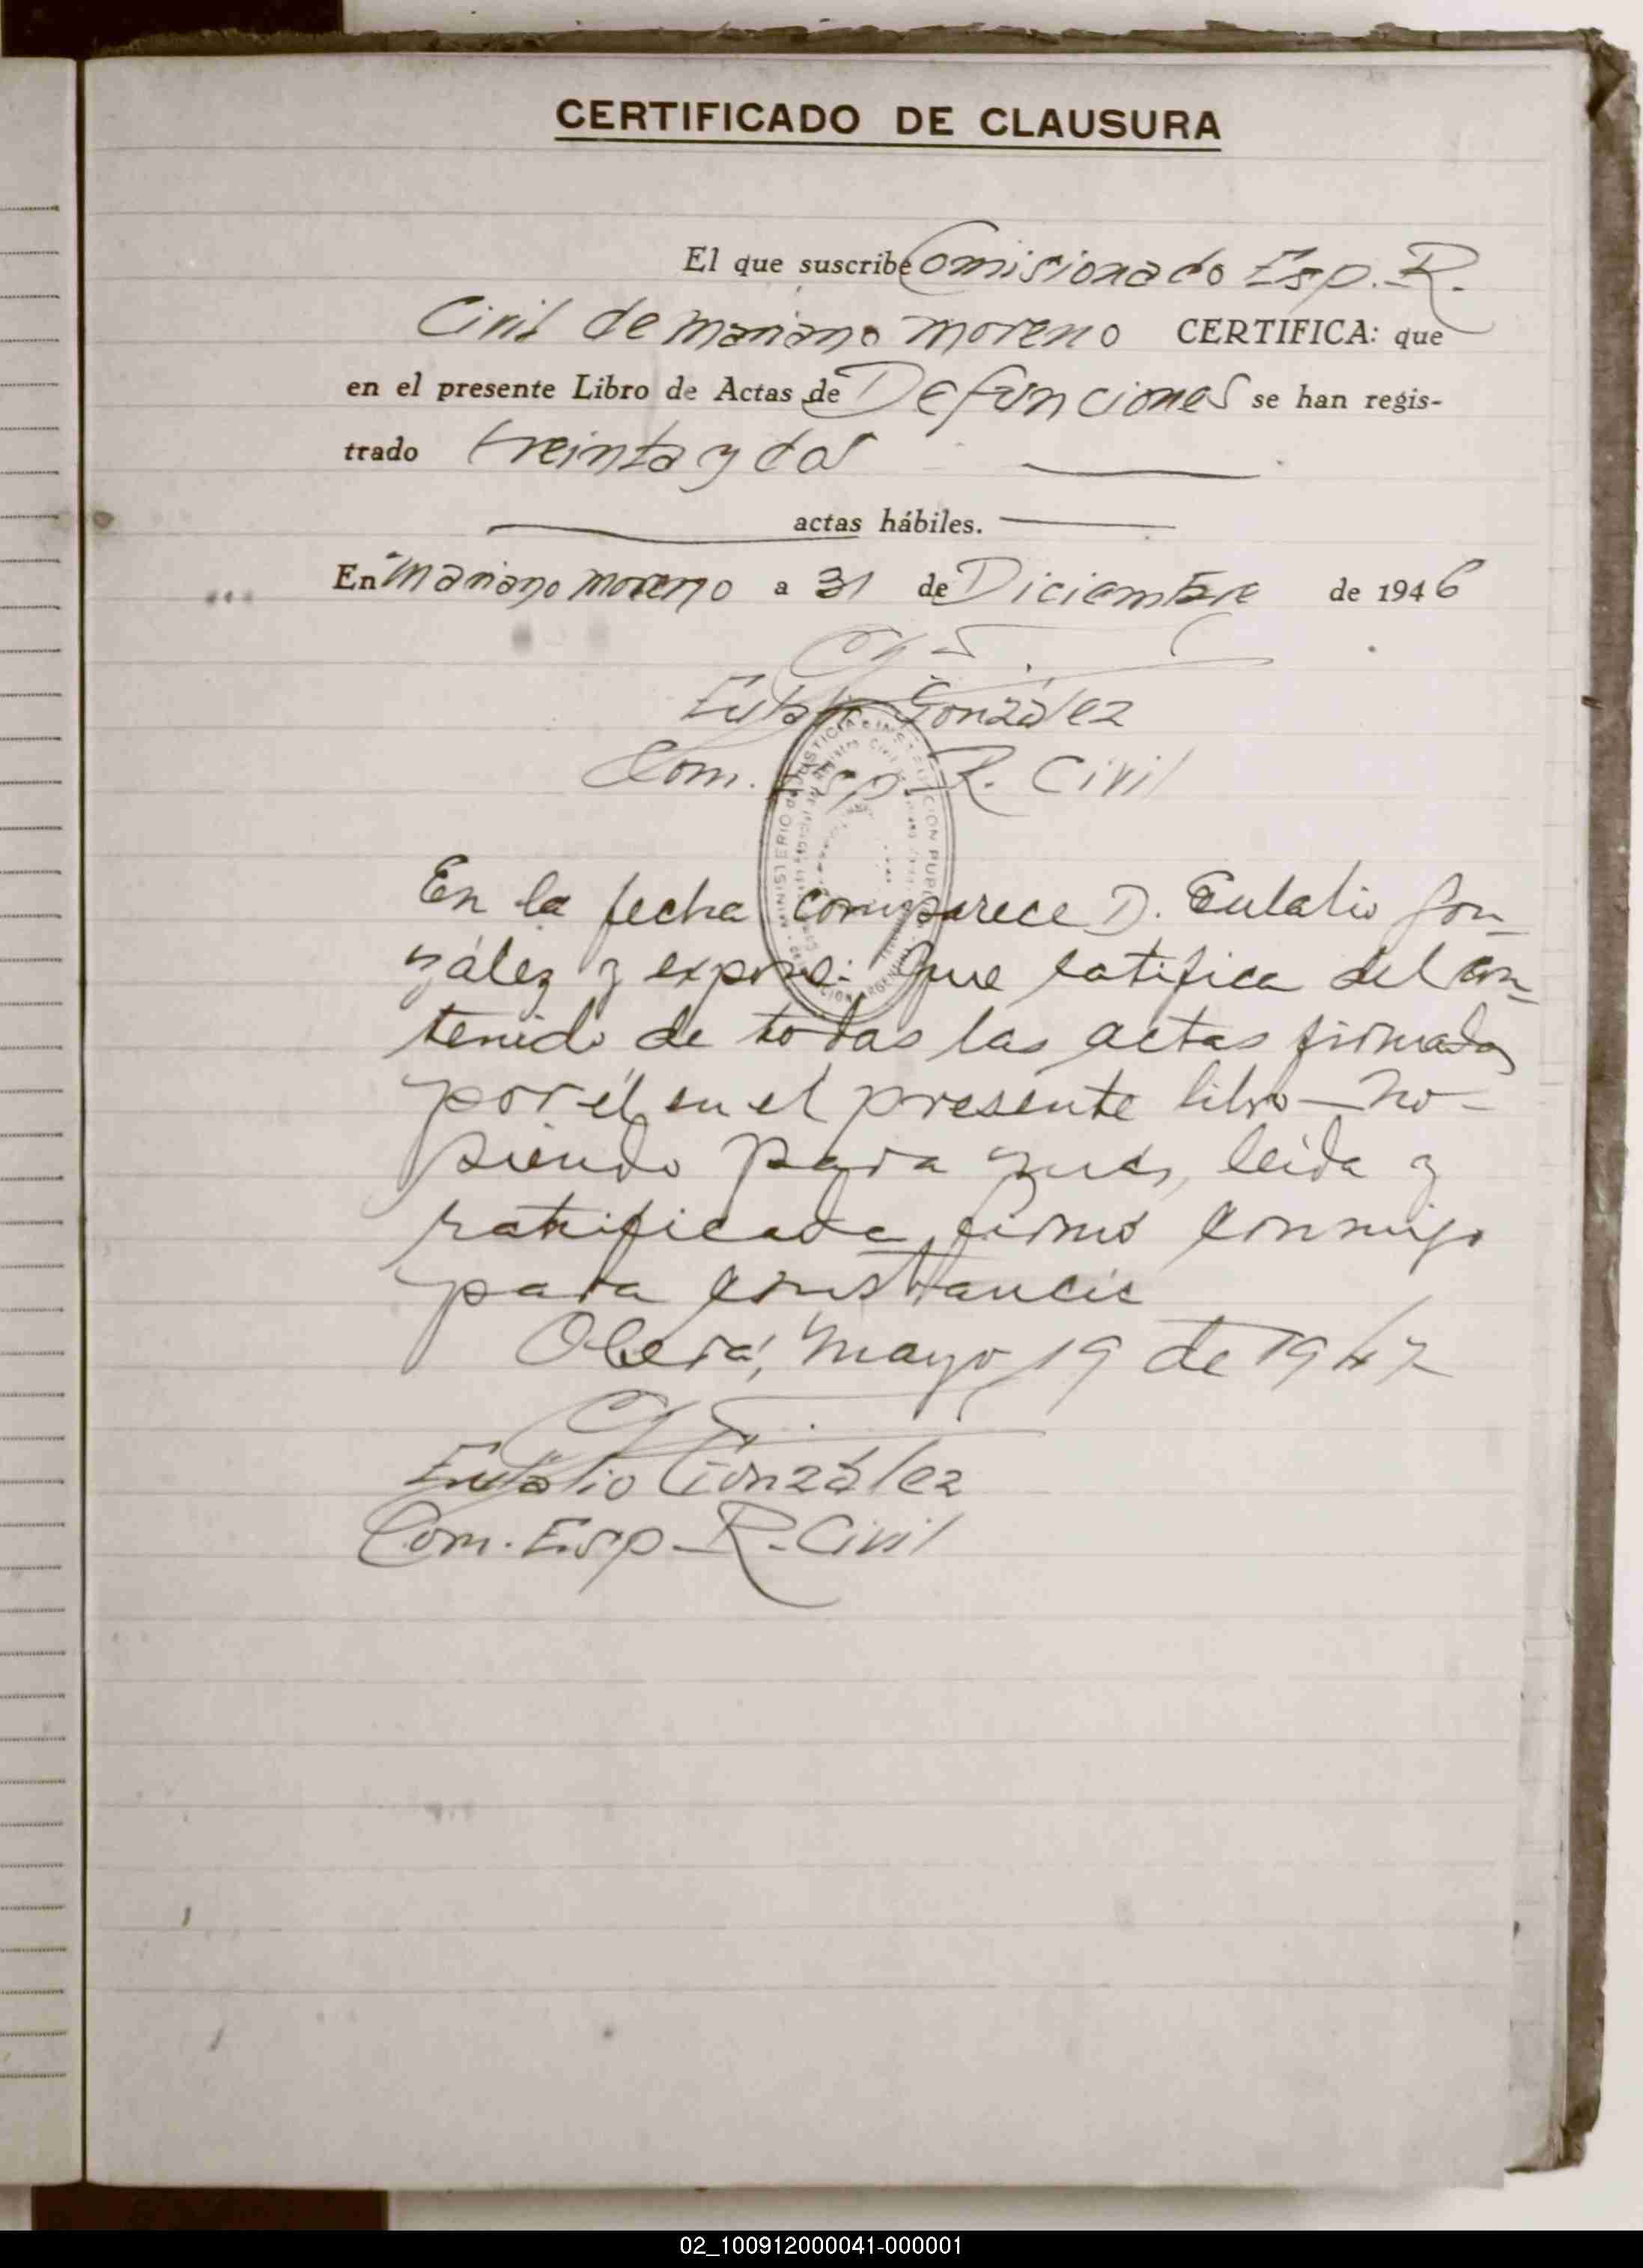 CERTIFICADO DE CLAUSURA
El que suscribe Comisionado Esp. R.
Civil de Mariano Moreno CERTIFICA: que
en el presente Libro de Actas de Defunciones se han regis-
trado treinta y dos
actas hábiles.
En Mariano Moreno a 31 de Diciembre de 1946
Eulalio González
Com. Esp. R. Civil
MINISTERIO de JUSTICIA e INSTRUCCION PUBLICA
En la fecha comparece D. Eulalio Gon-
zález y expone: Que ratifica del con-
tenido de todas las actas firmadas
por él en el presente libro - No -
siendo para más, leida y
ratificada firmó conmigo
para constancia
Oberá, Mayo 19 de 1947
Eulalio González
Com. Esp. R. Civil
02_100912000041-000001